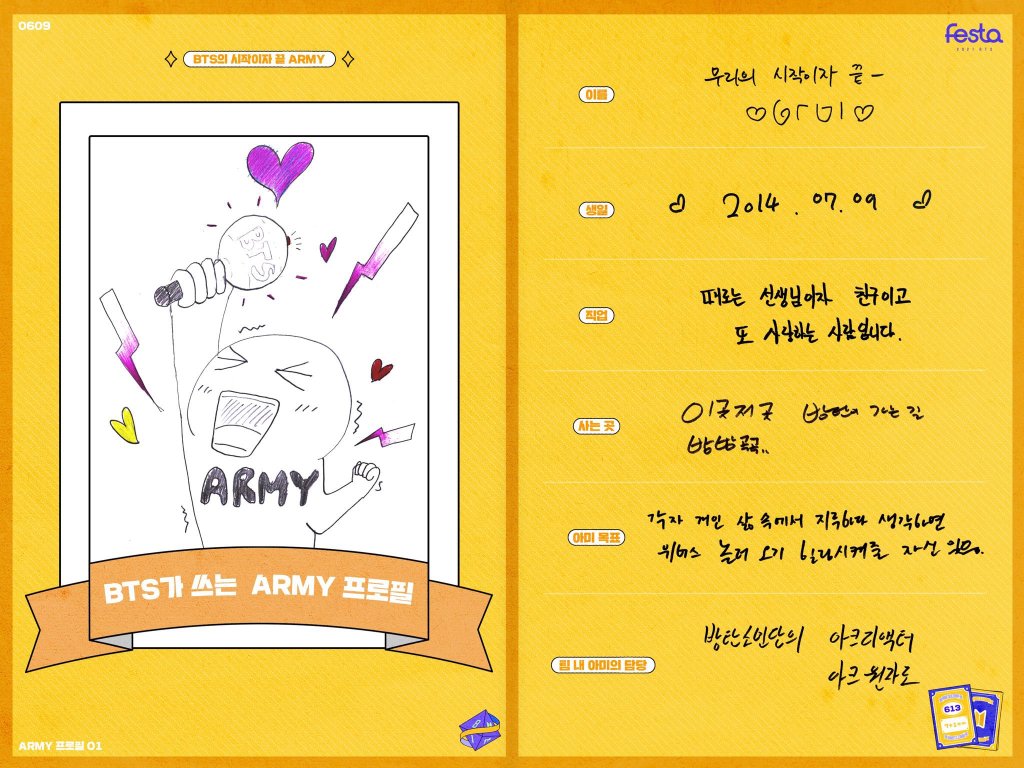 0609
BTS의 시작이자 끝 ARMY
BTS
ARMY
BTS가 쓰는 ARMY 프로필
ARMY 프로필 01
festa
2021 BTS
이름
우리의 시작이자 끝 -
생일
♡ 2014 . 07. 09 ♡
직업
때로는 선생님이자 친구이고
또 사랑하는 사람입니다.
사는 곳
이곳저곳 방탄이 가는 길
방방곡곡..
아미 목표
각자 개인 삶 속에서 지루하다 생각하면
위버스 놀러 오기 힐링시켜줄 자신 있음.
팀 내 아미의 담당
방탄소년단의 아크리액터
아크 원자로
613